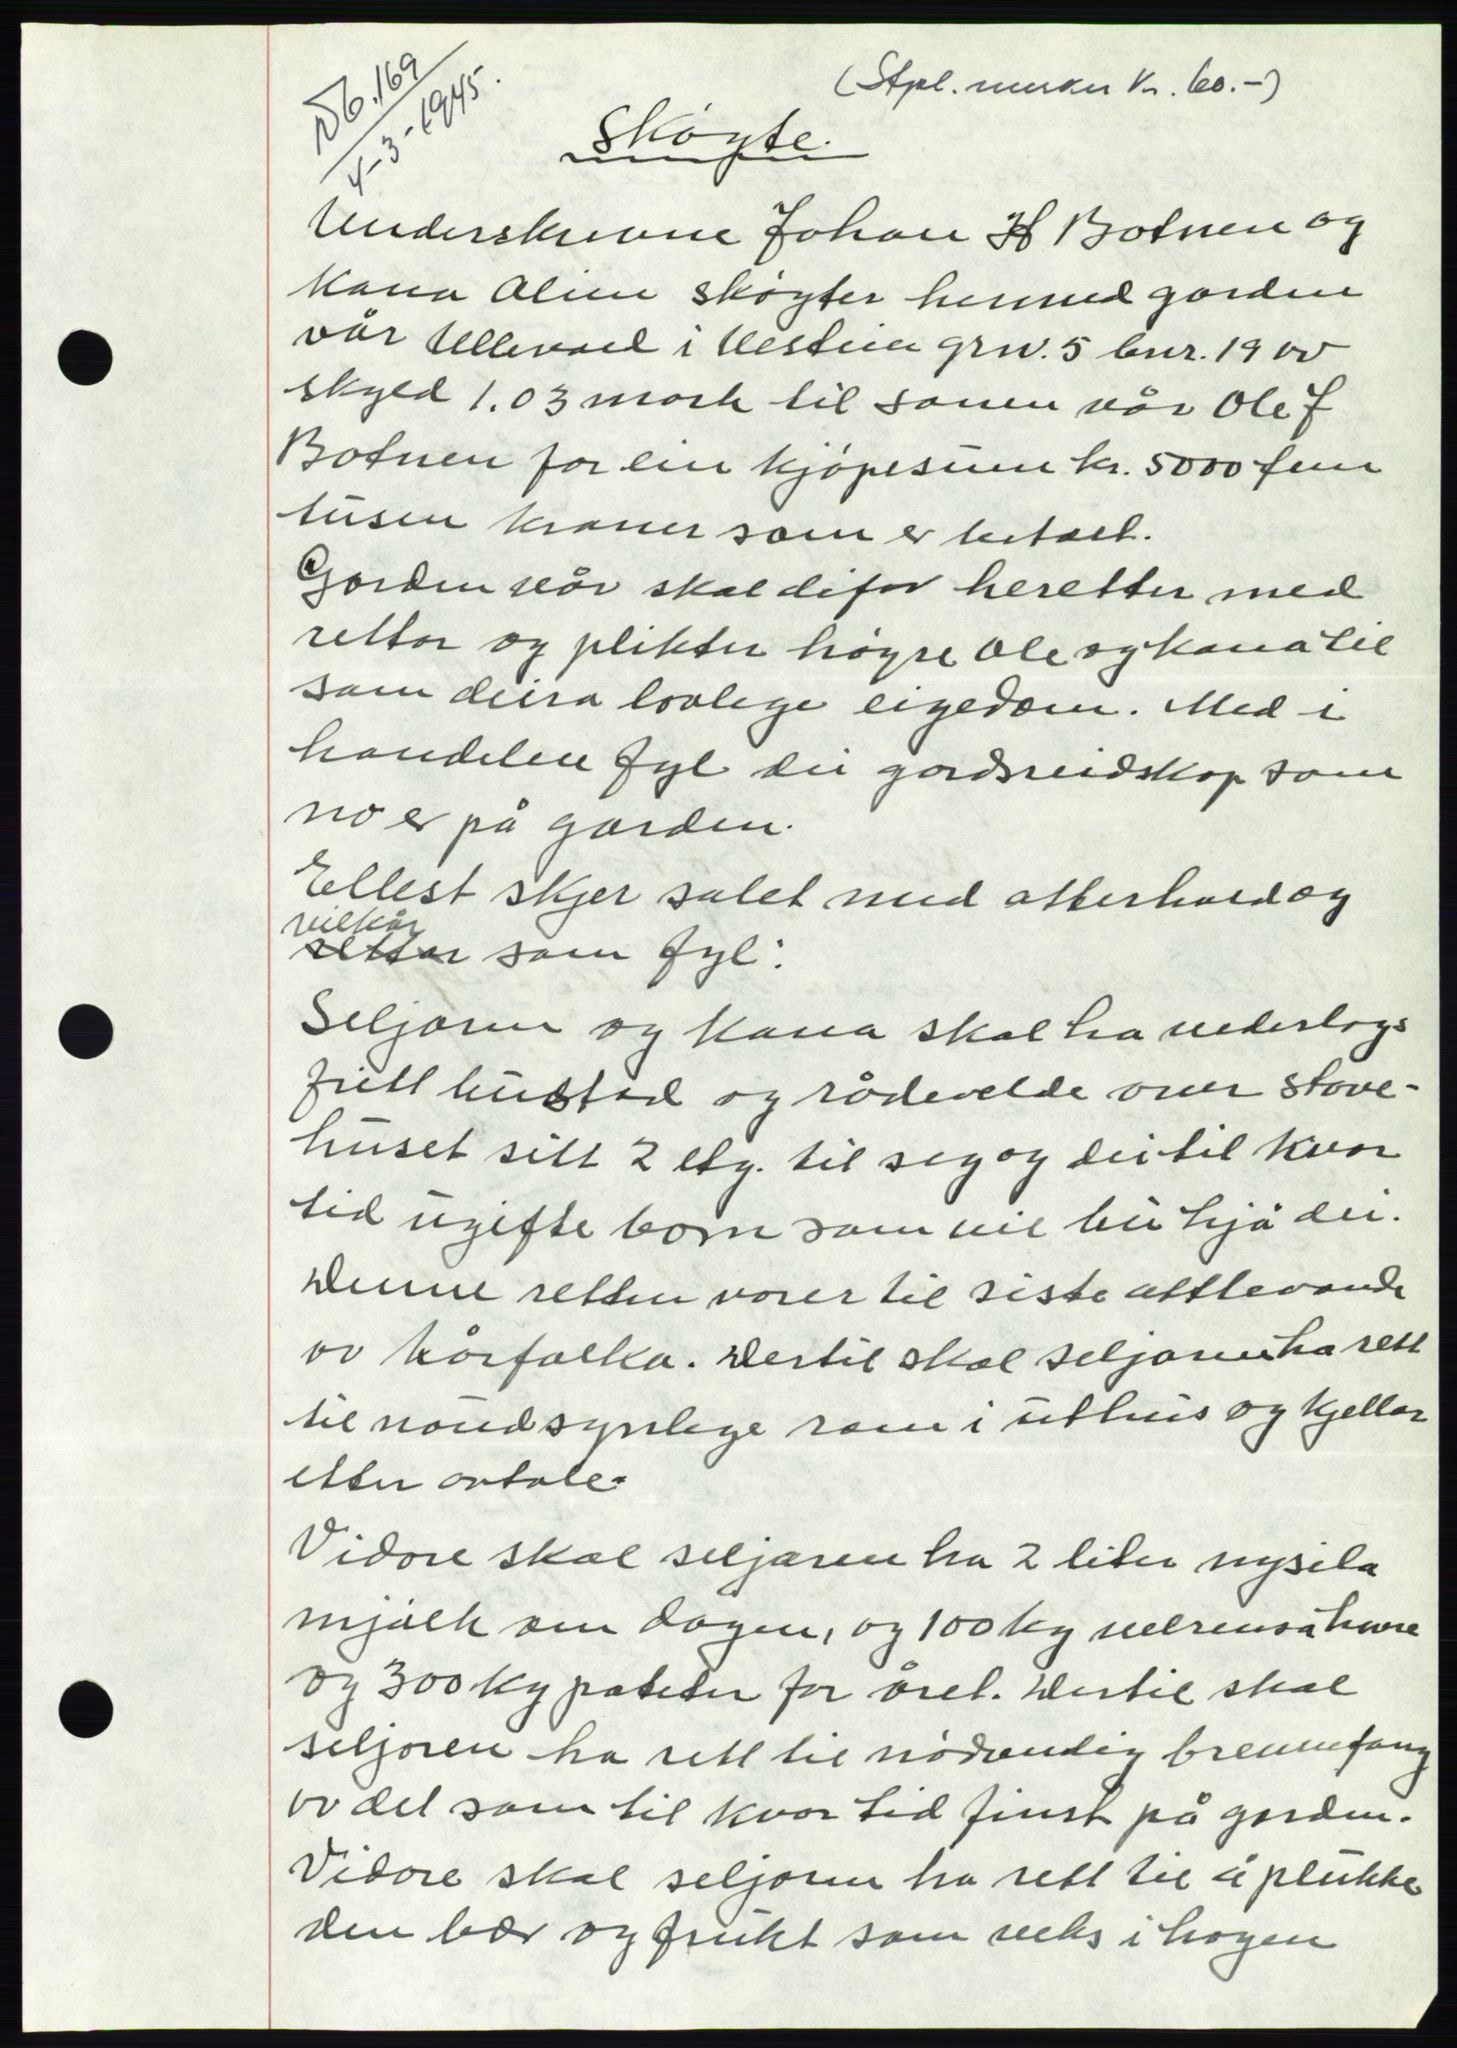 Db. 169
4-3-1945.
(Stpl. merker Kr. 60.-)
Skøyte.
Underskrivne Johan H Botnen og
kana Aline skøyter hermed garden
vår Ullevoll i grnr. 5 bnr. 19 av
skyld 1.03 mark til sonen vår Ole J
Botnen for ein kjøpesum kr. 5000 fem
tusen kroner som er betalt.
Garden vår skal difor heretter med
rettar og plikter høyre Ole og kona til
som deira lovlege eigedom. Med i
handelen fyl dei gardsreidskap som
no er på garden.
Ellest skjer salet med atterhald og
vilkår
rettar som fyl:
Seljaren og kona skal ha vederlags
fritt bustad og råderelde over stove-
huset sitt 2 etg. til seg og dei til kvar
tid ugifte born som vil bu hjå dei.
Denne retten varer til siste attlevande
av kårfolka. Dertil skal seljaren ha rett
til naudsynlege rom i uthus og kjellar
etter avtale.
Vidare skal seljaren ha 2 liter nysila
mjølk om dagen, og 100 kg velrensa havre
og 300 kg poteter for året. Dertil skal
seljaren ha rett til nødvendig brennfang
av det som til kvar tid finst på garden.
Vidare skal seljaren ha rett til å plukke
den bær og frukt som veks i hagen